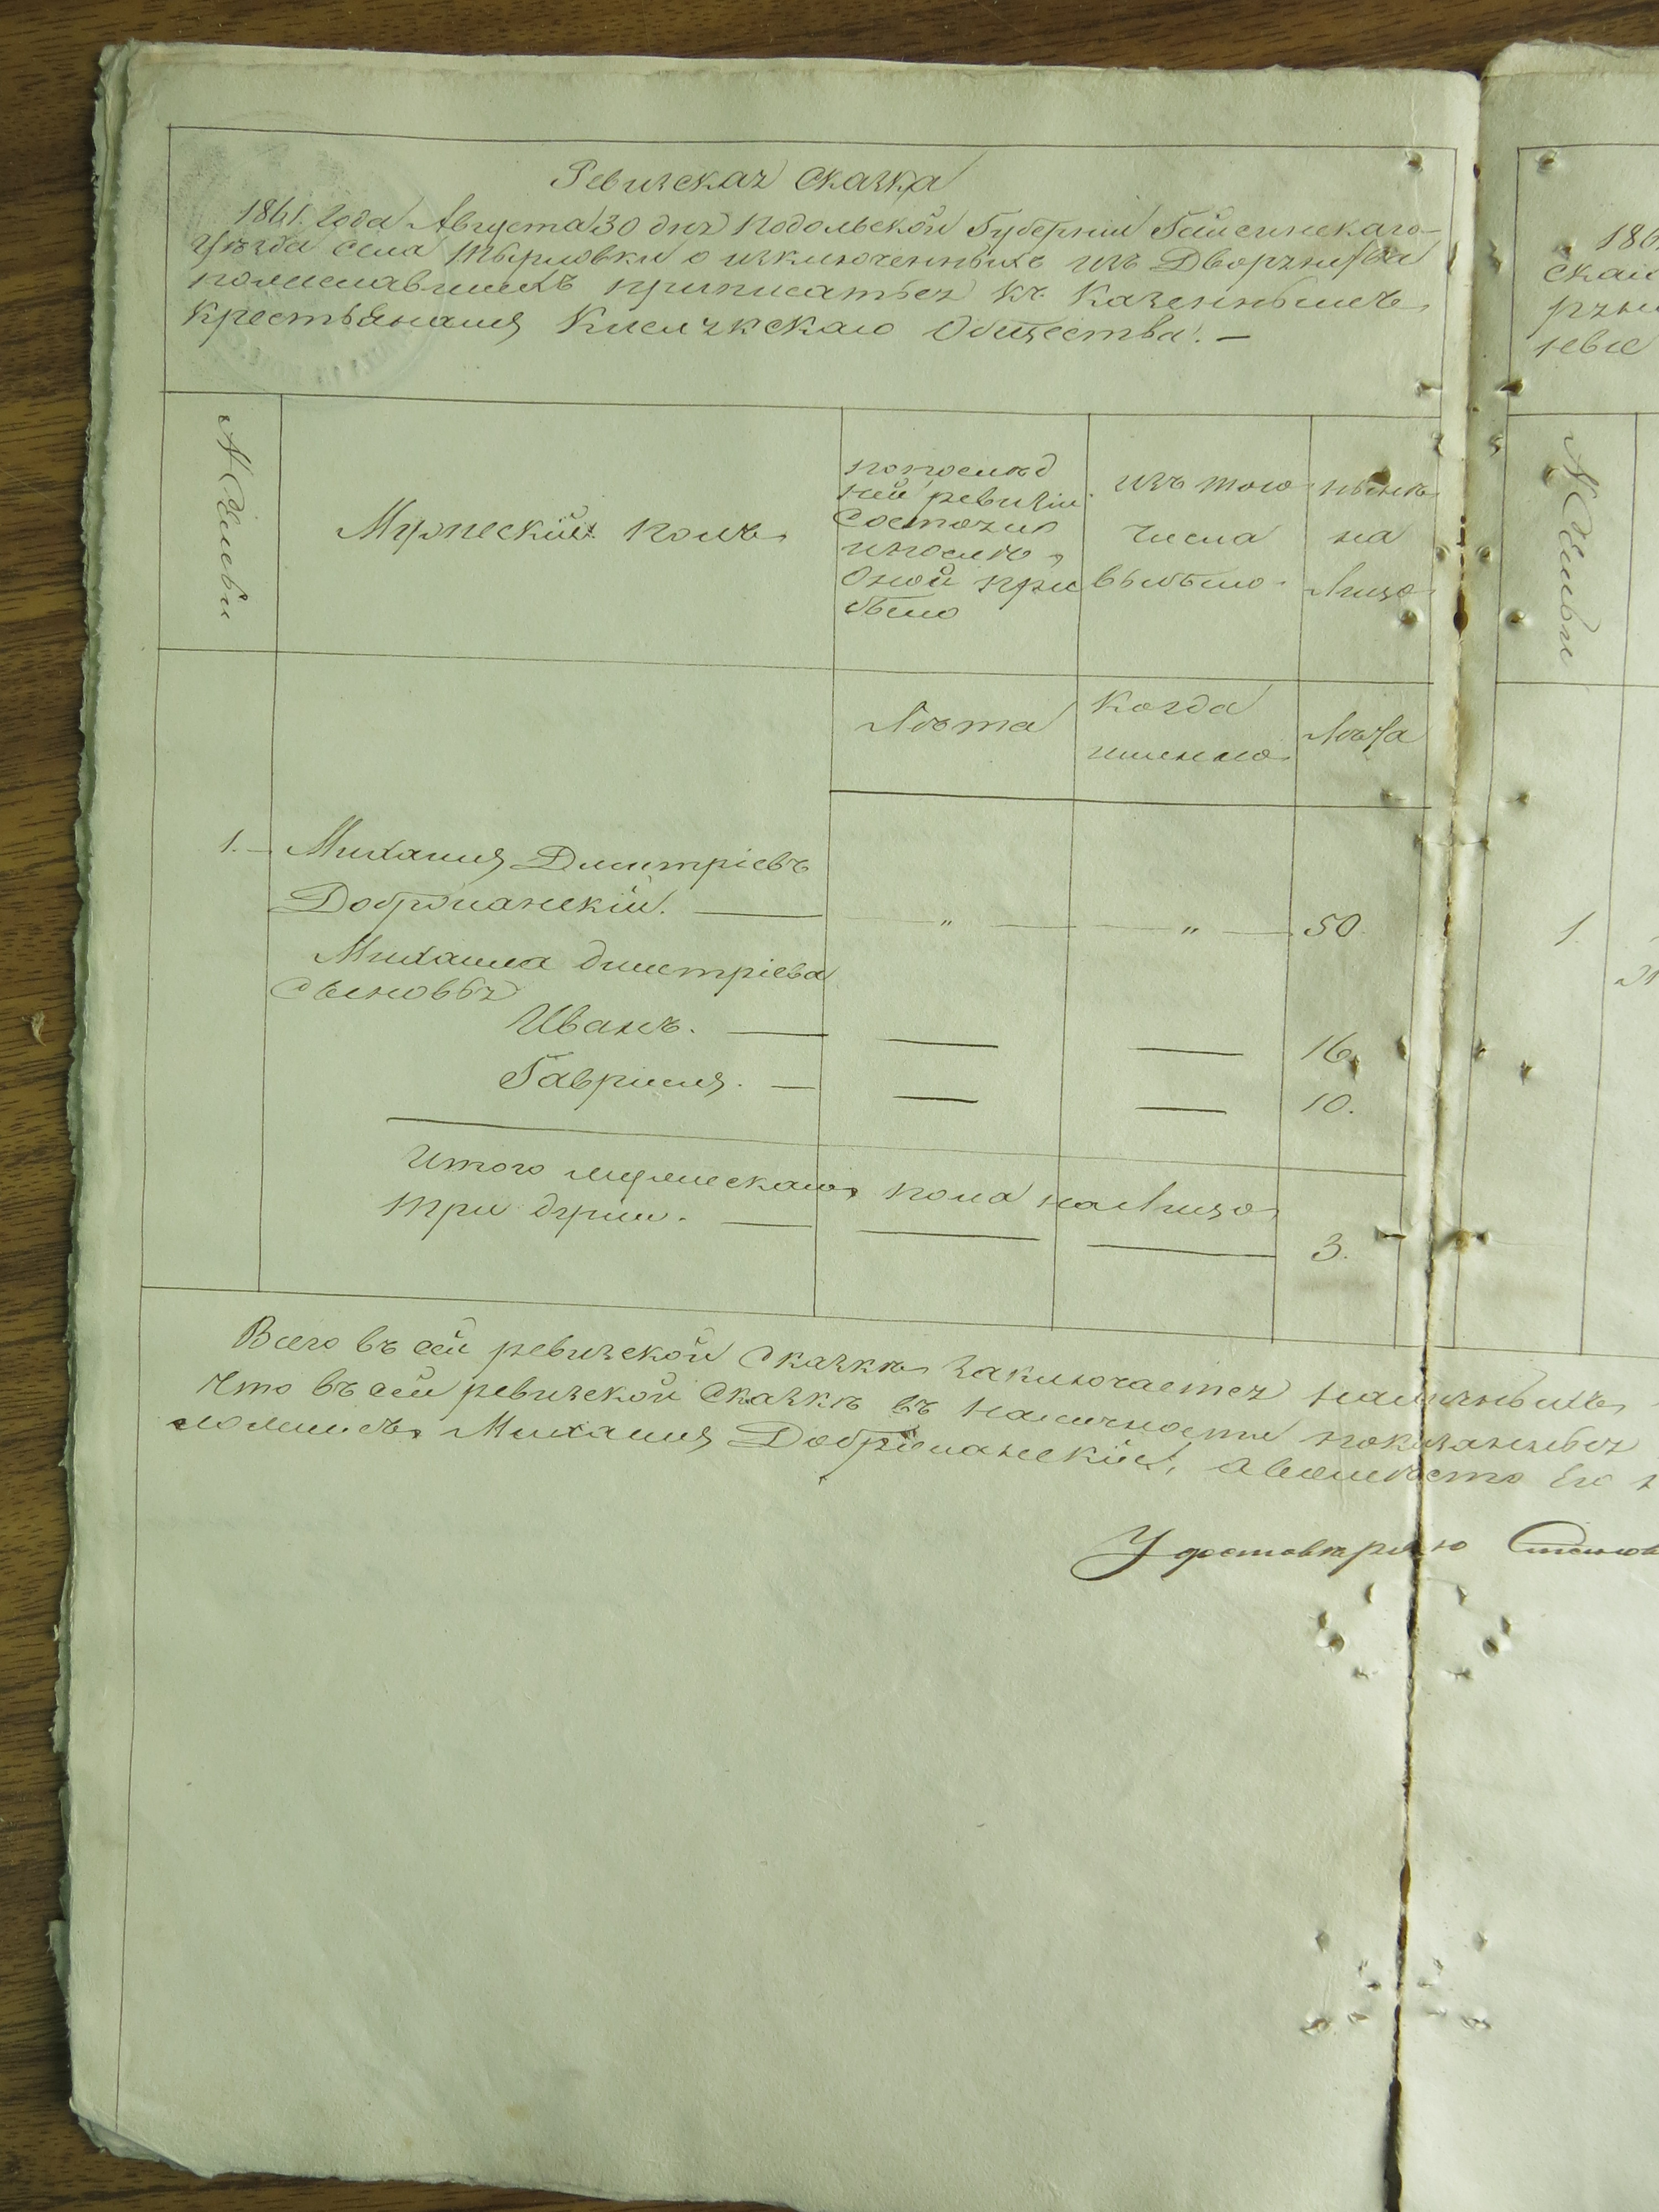 Ревизская Сказка
1861. года Августа 30 дня Подольской Губернии Гайсинскаго
Уѣзда Села Тырловки о изключенныхъ изъ Дворянства
пожелавшихъ приписаться къ Казеннымъ
Крестьянамъ Кислякскаго Общества. —
№ Семьи
Мужескій полъ
попослѣд
ней ревизіи
Состояло
ипослѣ
Оной при
было
изъ того
числа
выбыло.
нынѣ
на
Лицо
Лѣта
Когда
именно
Лѣта
1. — Михаилъ Дмитріевъ
Добржанскій. — „ — „ — 50.
Михаила дмитріева
Сыновья
Иванъ. — — — 16.
Гаврилъ. — — — 10.
Итого мужескаго пола на Лицо
три души. — — — 3.
Всего въ сей ревизской Сказкѣ Заключается наличныхъ
Что въ сей ревизской Сказкѣ въ наличности показанныя
Михаилъ Добржанскій, а вместо Его
Удостовѣряю
186
скаго
ря
№ Семьи
1.